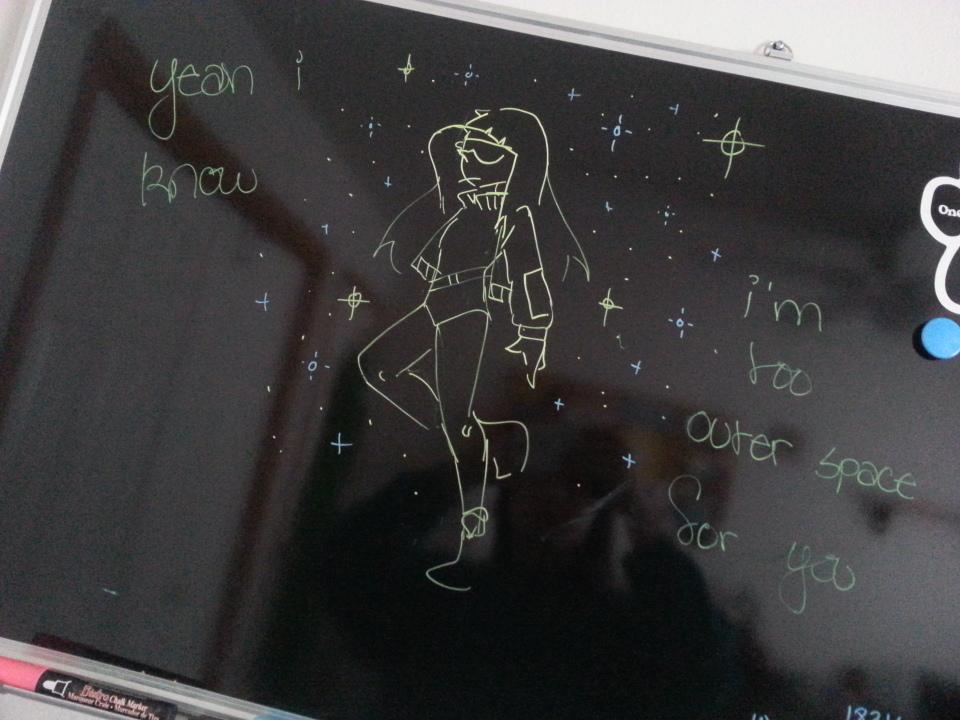 yeah i
know
i'm
too
outer space
for you
One
Bistro Chalk Marker
Marqueur Craie • Marcador de Tiza